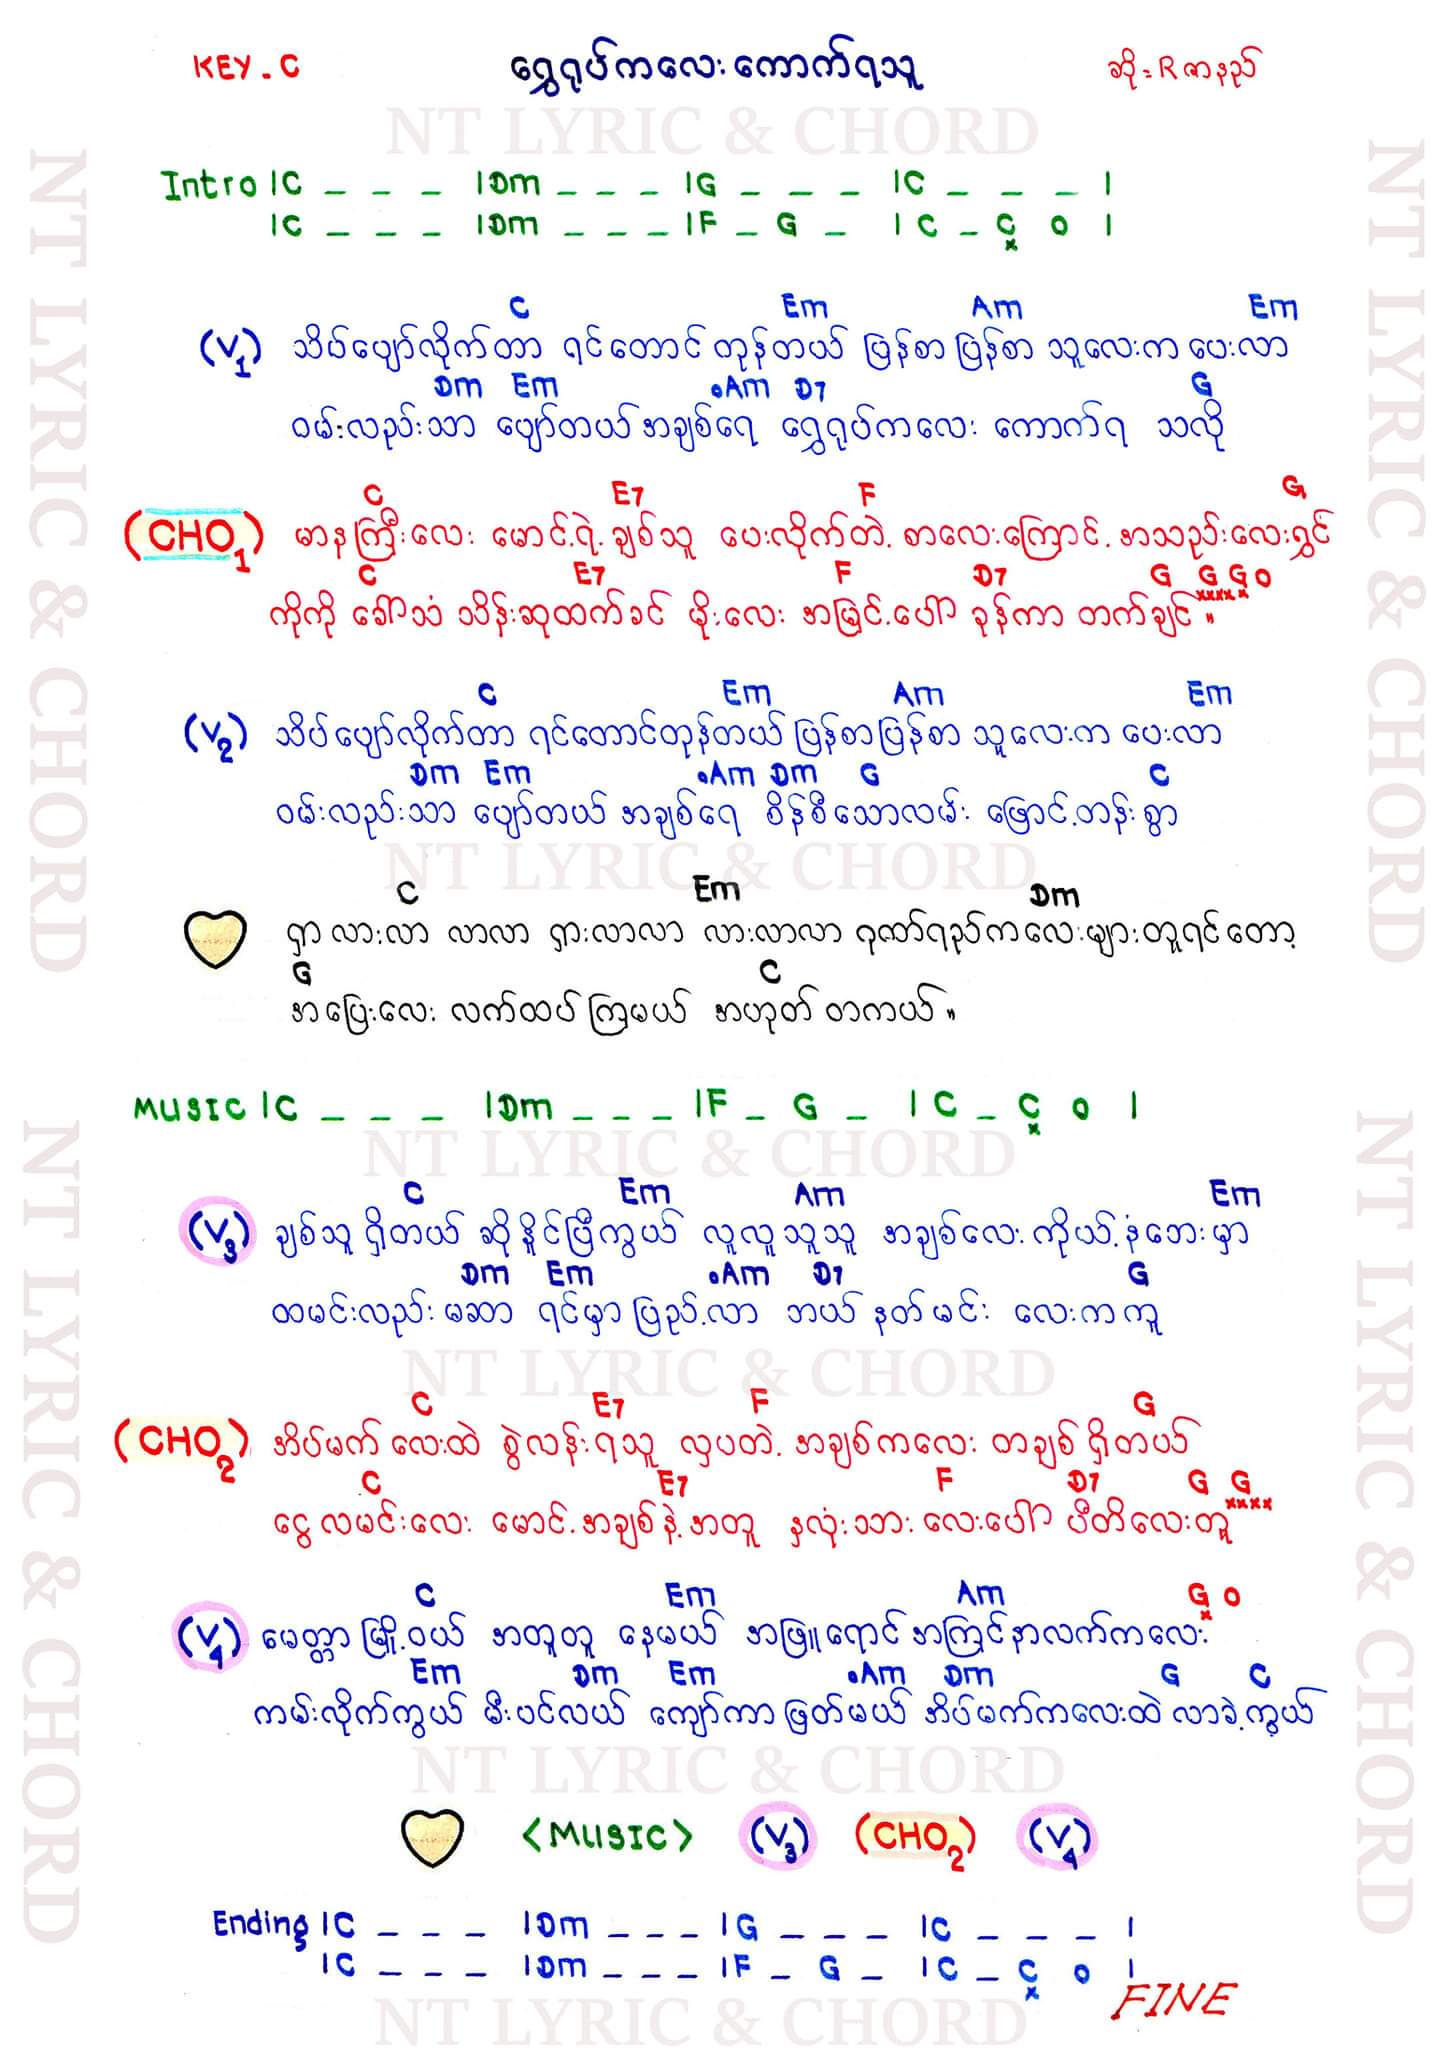 KEY - C ရွှေရုပ်ကလေးကောက်ရသူ ဆို = R ဇာနည်
NT LYRIC & CHORD
Intro |C _ _ _ |Dm _ _ _ |G _ _ _ |C _ _ _ |
|C _ _ _ |Dm _ _ _ |F _ G _ |C _ C 0 |
x
C Em Am Em
(V1) သိပ်ပျော်လိုက်တာ ရင်တောင် တုန်တယ် ပြန်စာ ပြန်စာ သူလေးက ပေးလာ
Dm Em •Am D7 G
ဝမ်းလည်းသာ ပျော်တယ် အချစ်ရေ ရွှေရုပ်ကလေး ကောက်ရ သလို
C E7 F G
(CHO1) မာနကြီးလေး မောင့်ရဲ့ ချစ်သူ ပေးလိုက်တဲ့ စာလေးကြောင့် အသည်းလေးရွှင်
C E7 F D7 G G G 0
xxxx x
ကိုကို ခေါ်သံ သိန်းဆုထက်ခင် မိုးလေး အမြင့်ပေါ် ခုန်ကာ တက်ချင်။
C Em Am Em
(V2) သိပ်ပျော်လိုက်တာ ရင်တောင်တုန်တယ် ပြန်စာပြန်စာ သူလေးက ပေးလာ
Dm Em •Am Dm G C
ဝမ်းလည်းသာ ပျော်တယ် အချစ်ရေ စိန်စီသောလမ်း ဖြောင့်တန်းစွာ
NT LYRIC & CHORD
C Em Dm
ရှာ လားလာ လာလာ ရှားလာလာ လားလာလာ ဂုဏ်ရည်ကလေးများတူရင်တော့
G C
အပြေးလေး လက်ထပ်ကြမယ် အဟုတ် တကယ်။
MUSIC |C _ _ _ |Dm _ _ _ |F _ G _ |C _ C 0 |
x
NT LYRIC & CHORD
C Em Am Em
(V3) ချစ်သူ ရှိတယ် ဆိုနိုင်ပြီကွယ် လူလူသူသူ အချစ်လေး ကိုယ့်နံဘေးမှာ
Dm Em •Am D7 G
ထမင်းလည်း မဆာ ရင်မှာပြည့်လာ ဘယ် နတ်မင်း လေးကကူ
NT LYRIC & CHORD
C E7 F G
(CHO2) အိပ်မက်လေးထဲ စွဲလန်းရသူ လှပတဲ့ အချစ်ကလေး တချစ်ရှိတယ်
C E7 F D7 G G
xxxx
ငွေလမင်းလေး မောင့်အချစ်နဲ့အတူ နှလုံးသားလေးပေါ် ပီတိလေးတူ
C Em Am G 0
x
(V4) မေတ္တာမြို့ဝယ် အတူတူ နေမယ် အဖြူရောင် အကြင်နာလက်ကလေး
Em Dm Em •Am Dm G C
ကမ်းလိုက်ကွယ် မီးပင်လယ် ကျော်ကာဖြတ်မယ် အိပ်မက်ကလေးထဲ လာခဲ့ကွယ်
NT LYRIC & CHORD
<MUSIC> (V3) (CHO2) (V4)
Ending |C _ _ _ |Dm _ _ _ |G _ _ _ |C _ _ _ |
|C _ _ _ |Dm _ _ _ |F _ G _ |C _ C 0 |
x
FINE
NT LYRIC & CHORD
NT LYRIC & CHORD
NT LYRIC & CHORD
NT LYRIC & CHORD
NT LYRIC & CHORD